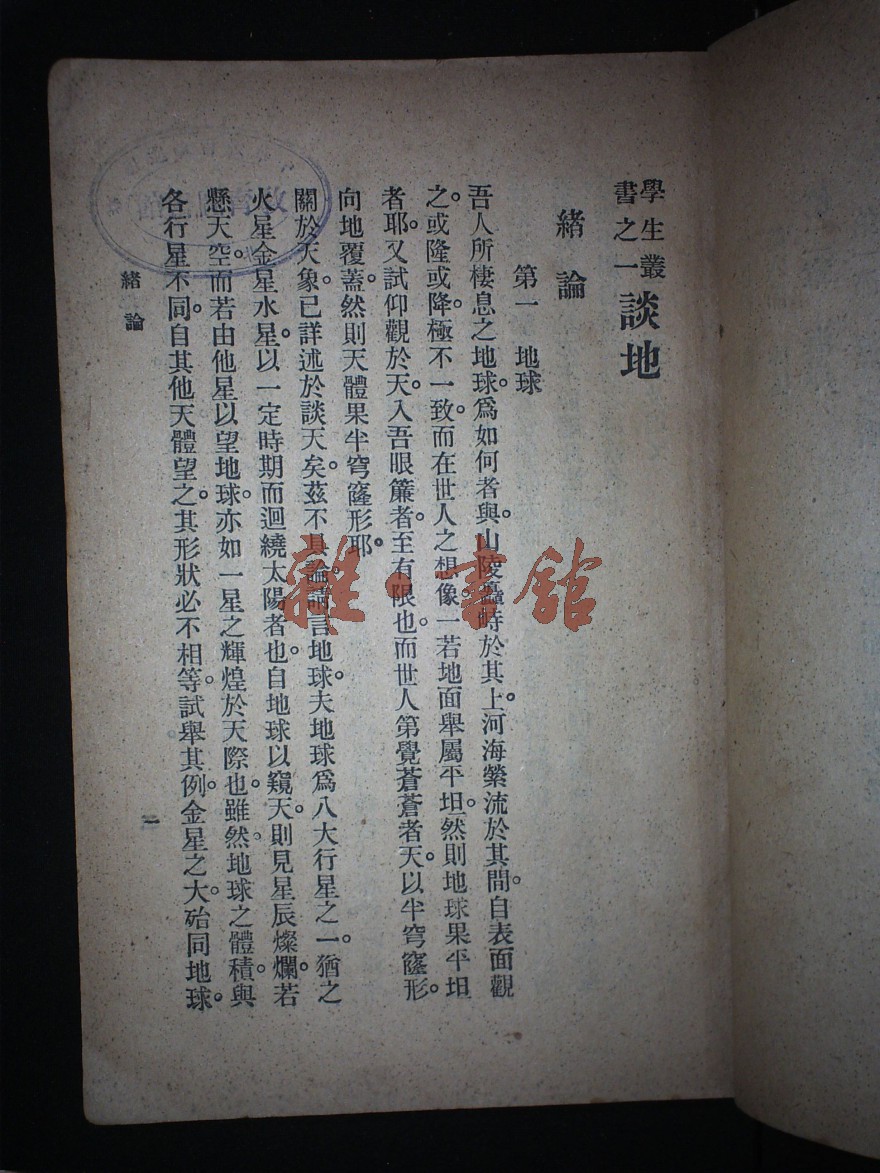 學生叢
書之一
談地
緒論
第一　地球
吾人所棲息之地球。爲如何者與。山陵聳峙於其上。河海縈流於其間。自表面觀
之。或隆或降。極不一致。而在世人之想像。一若地面舉屬平坦。然則地球果平坦
者耶。又試仰觀於天。入吾眼簾者。至有限也。而世人第覺蒼蒼者天。以半穹窿形
向地覆蓋。然則天體果半穹窿形耶。
關於天象。已詳述於談天矣。茲不具論。請言地球。夫地球爲八大行星之一。猶之
火星金星水星。以一定時期而迴繞太陽者也。自地球以窺天。則見星辰燦爛。若
懸天空。而若由他星以望地球。亦如一星之輝煌於天際也。雖然。地球之體積。與
各行星不同。自其他天體望之。其形狀必不相等。試舉其例。金星之大。殆同地球。
緒論
一
雜·書館